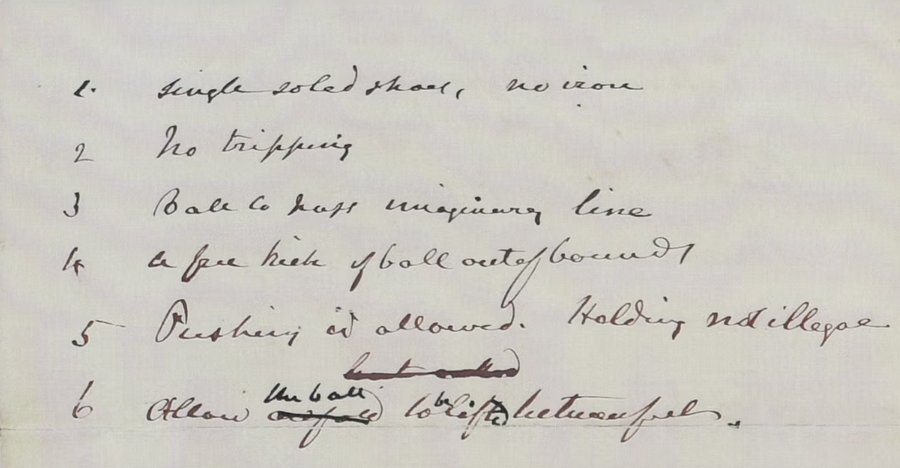 1. Single soled shoes, no iron
2 No tripping
3 Ball to pass imaginary line
4 A free kick if ball out of bounds
5 Pushing is allowed. Holding not illegal
6 Allow the ball to be lifted between feet.